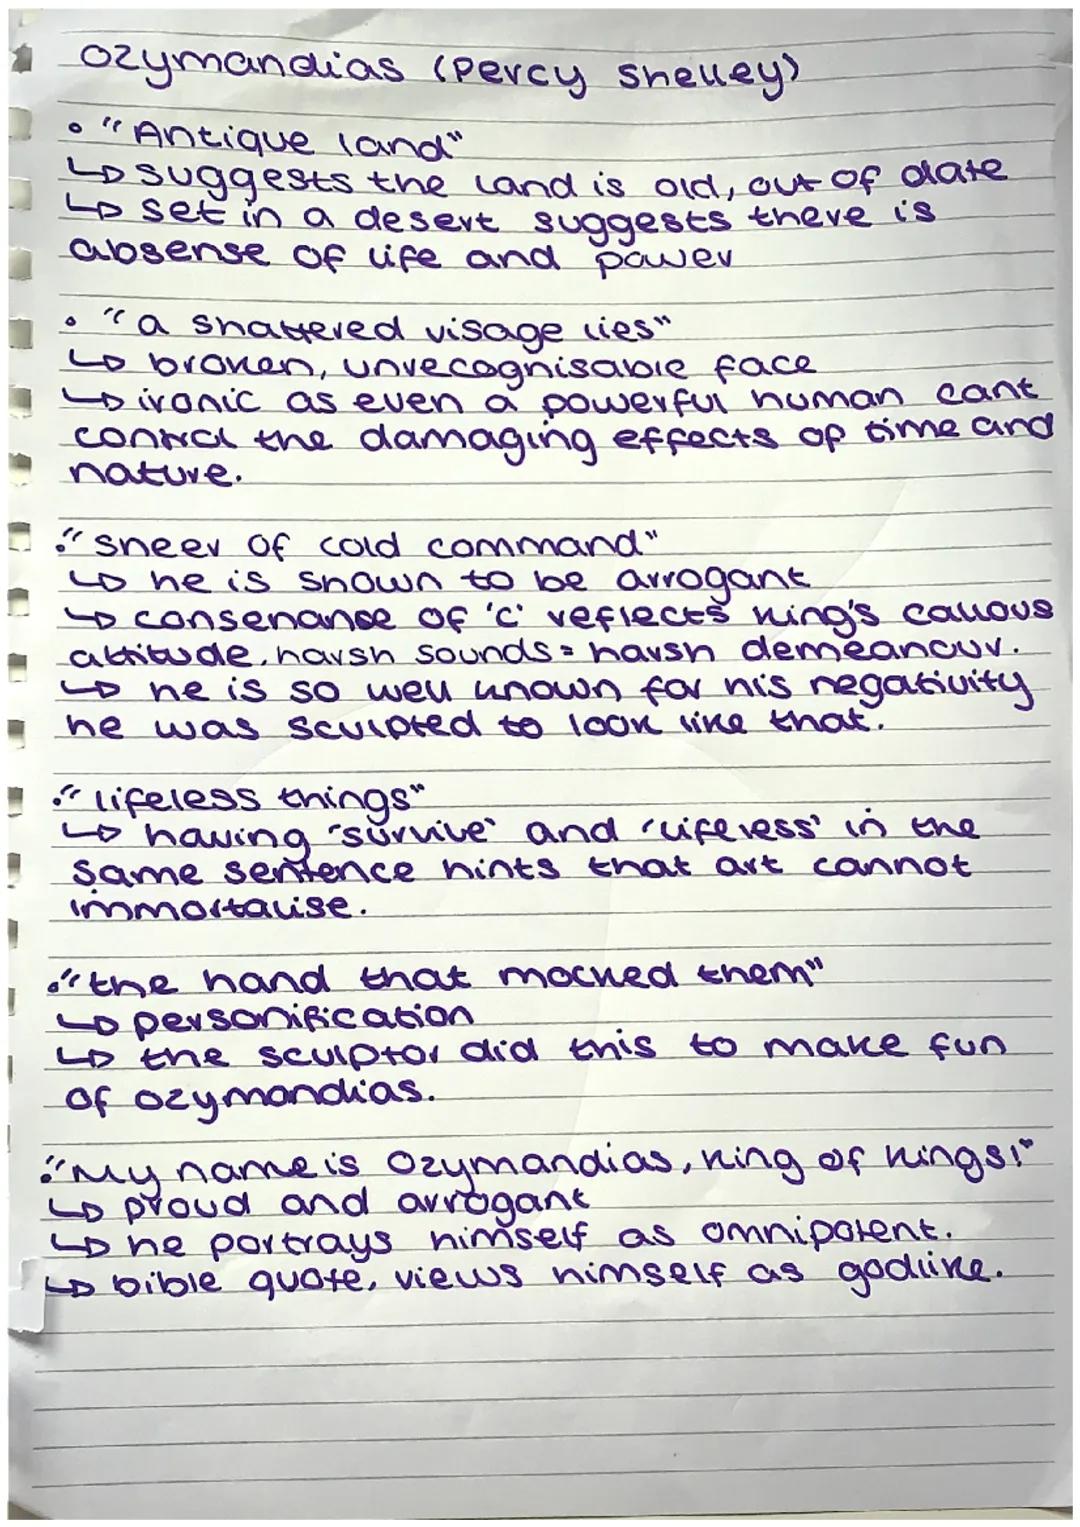 Ozymandias (Percy Shelley)
• "Antique land"
↳ suggests the land is old, out of date
↳ set in a desert suggests there is
absense of life and power
• "a shattered visage lies"
↳ broken, unrecognisable face
↳ ironic as even a powerful human cant
control the damaging effects of time and
nature.
• "sneer of cold command"
↳ he is shown to be arrogant
↳ consenanse of 'c' reflects king's callous
attitude. harsh sounds = harsh demeanour.
↳ he is so well known for his negativity
he was sculpted to look like that.
• "lifeless things"
↳ having 'survive' and 'lifeless' in the
same sentence hints that art cannot
immortalise.
• "the hand that mocked them"
↳ personification
↳ the sculptor did this to make fun
of ozymandias.
• "My name is Ozymandias, king of kings!"
↳ proud and arrogant
↳ he portrays himself as omnipotent.
↳ bible quote, views himself as godlike.